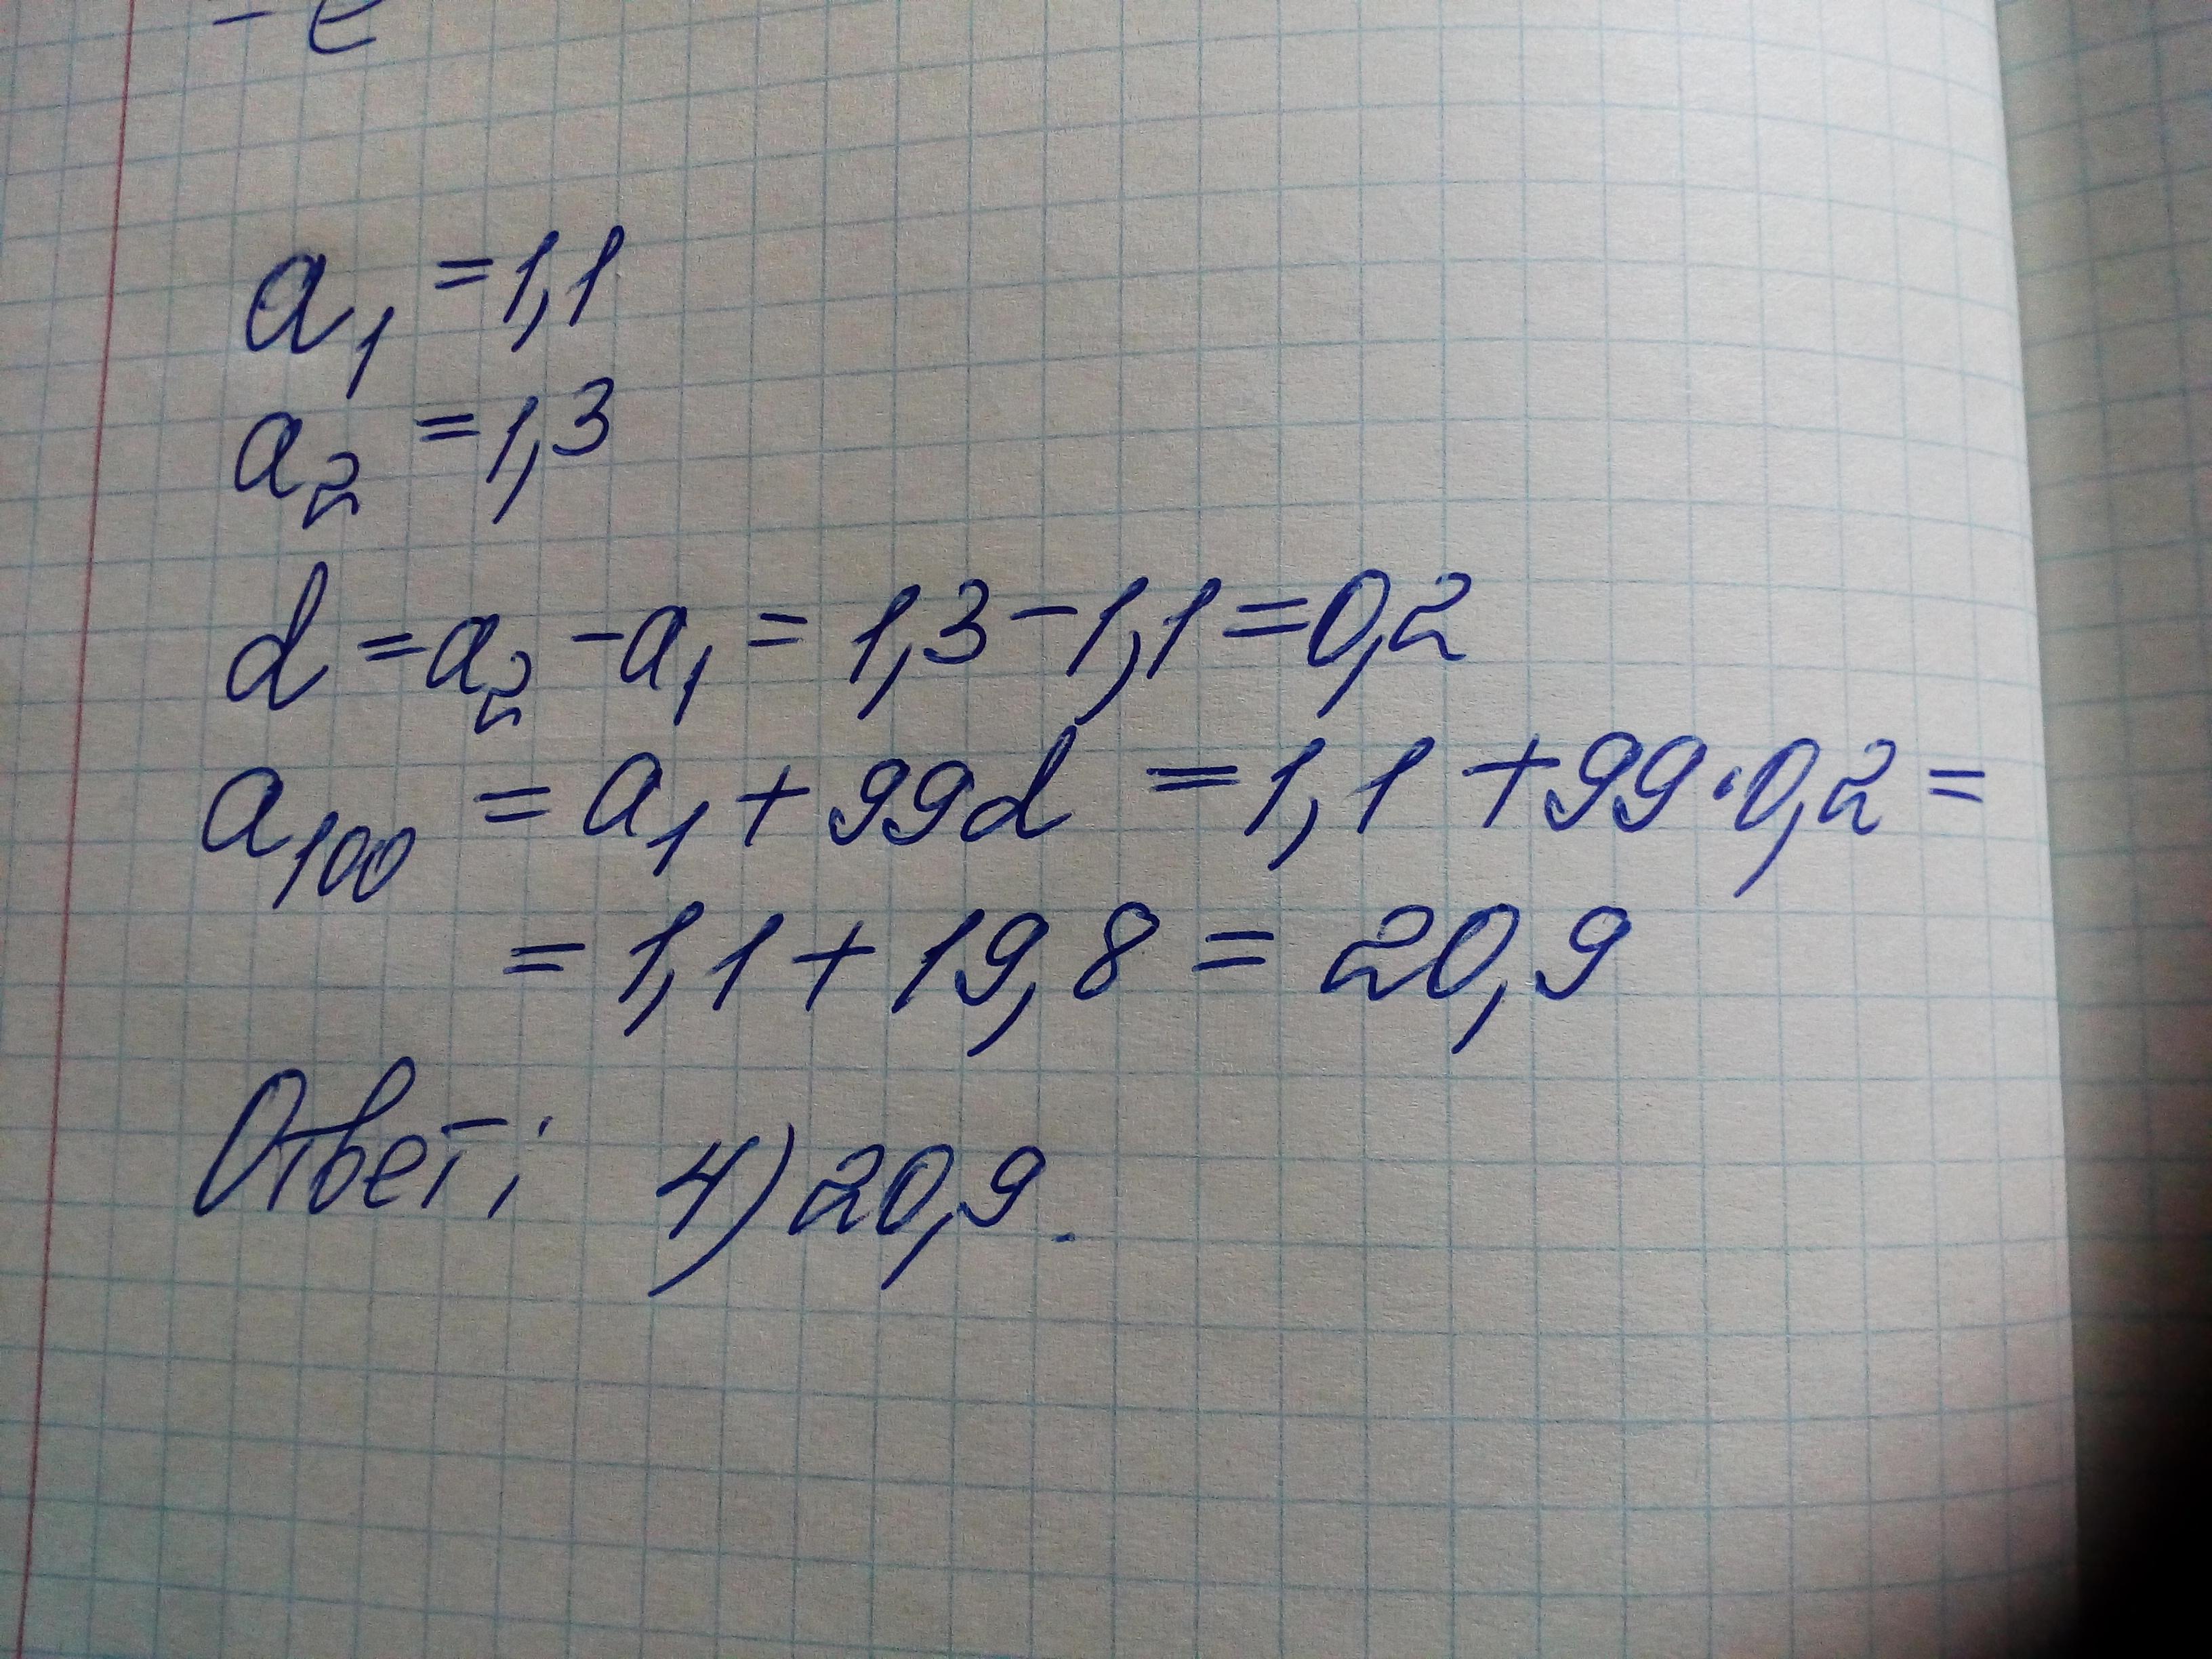 a₁ = 1,1
a₂ = 1,3
d = a₂ - a₁ = 1,3 - 1,1 = 0,2
a₁₀₀ = a₁ + 99d = 1,1 + 99 · 0,2 =
= 1,1 + 19,8 = 20,9
Ответ: 4) 20,9.